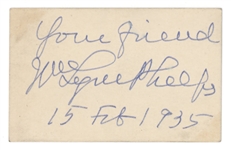 Your friend
Wm Lyon Phelps
15 Feb 1935